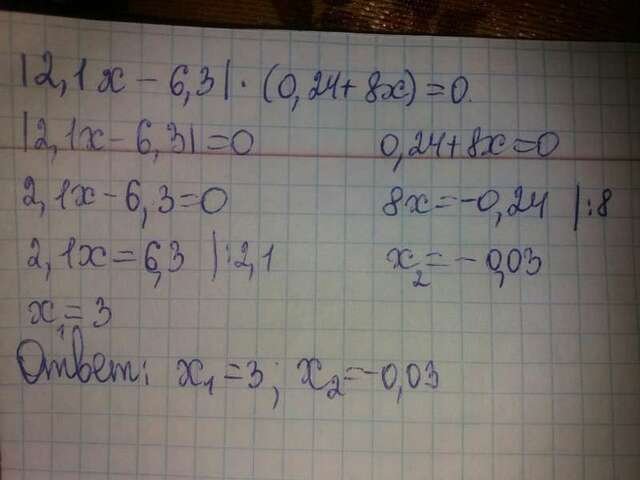 |2,1x - 6,3| · (0,24 + 8x) = 0.
|2,1x - 6,3| = 0 0,24 + 8x = 0
2,1x - 6,3 = 0 8x = -0,24 | :8
2,1x = 6,3 | :2,1 x₂ = -0,03
x₁ = 3
Ответ: x₁ = 3; x₂ = -0,03